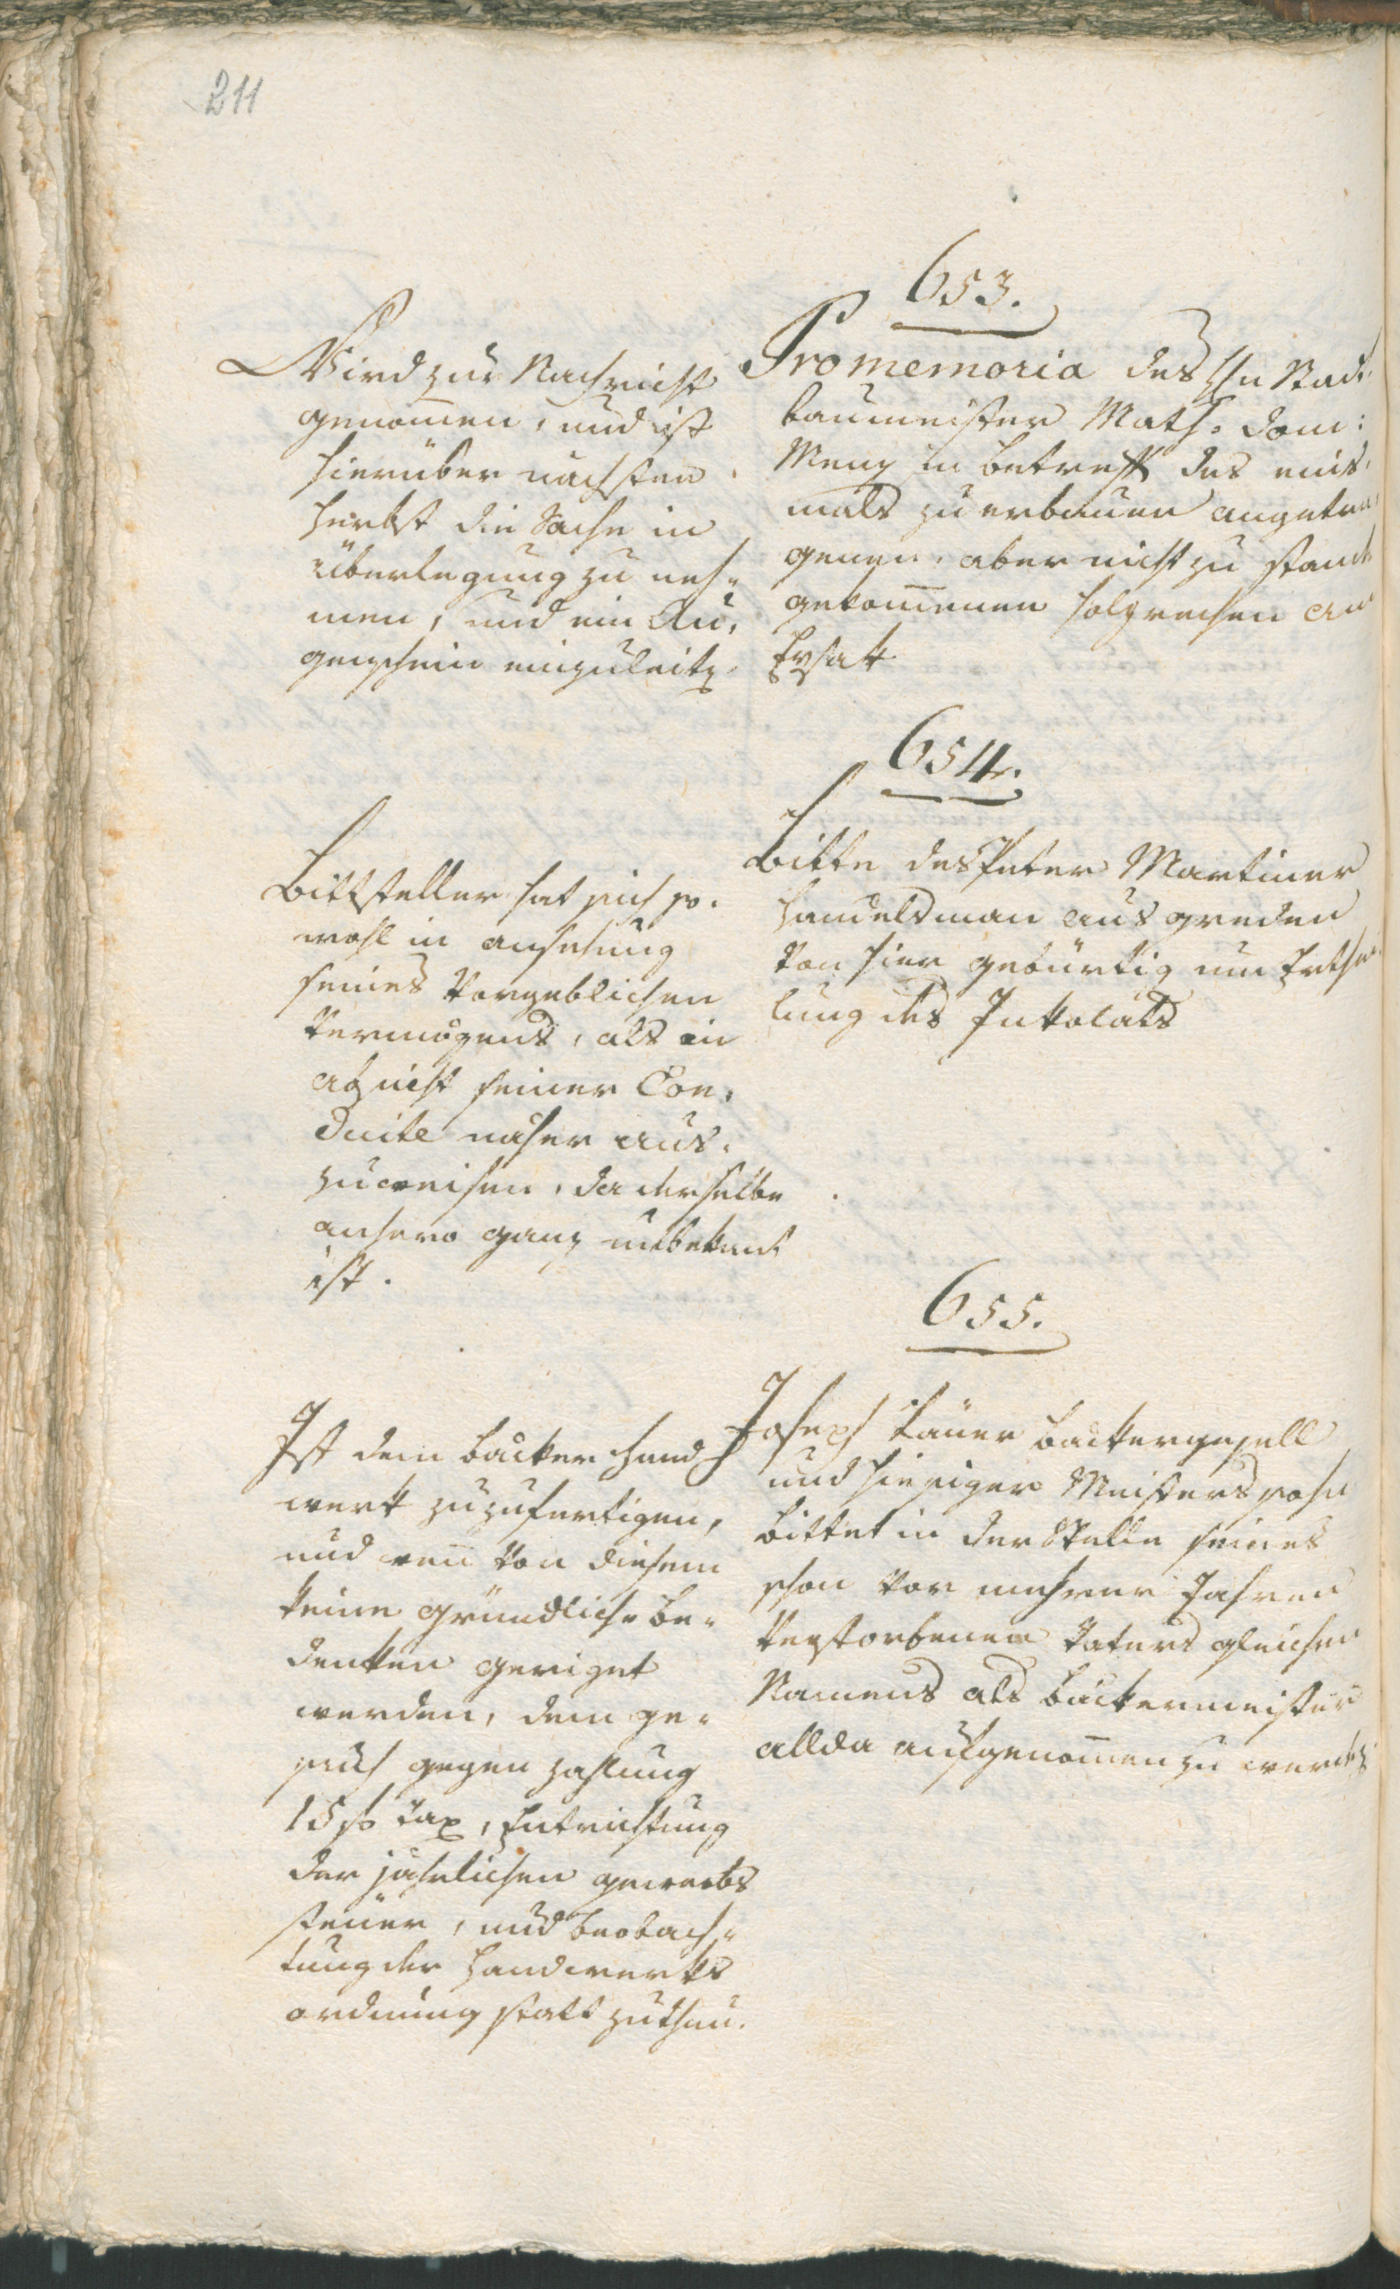 211
653.
Promemoria des Hn Stadt
baumeister Math. Dom:
Menz in betreff des eins,
mals zu erbauen angetra
genen, aber nicht zu stand
gekom̅enen holzrechen am
Eysak
Wird zur Nachricht
genom̅en, und ist
hierüber nächsten
Herbst die Sache in
Überlegung zu neh„
men, und ein Au,
genschein einzuleitn
654.
Bitte des Peter Martiner
Handelsman aus greden
von hier gebürtig um Erthei
lung des Inkolats
Bittsteller hat sich so.
wohl in ansehung
seines vorgeblichen
Vermögens, als in
absicht seiner Con,
duite näher aus,
zuweisen, da derselbe
anhero ganz unbekant
ist.
655.
Joseph bauer backergesell
und hiesiger Meisterssohn
bittet in der Stelle seines
schon vor mehrere Jahren
verstorbenen Vaters gleichen
Namens als bäckermeister
allda aufgenom̅en zu werdn
Ist dem backer hand
werk zuzufertigen,
und wen̅ von diesem
keine gründliche be„
denken geeignet
werden, dem ge„
such gegen zahlung
15 f tax, Entrichtung
der jährlichen gewerbs
steuer, und beobach„
tung der Handwerks
ordnung statt zuthun.